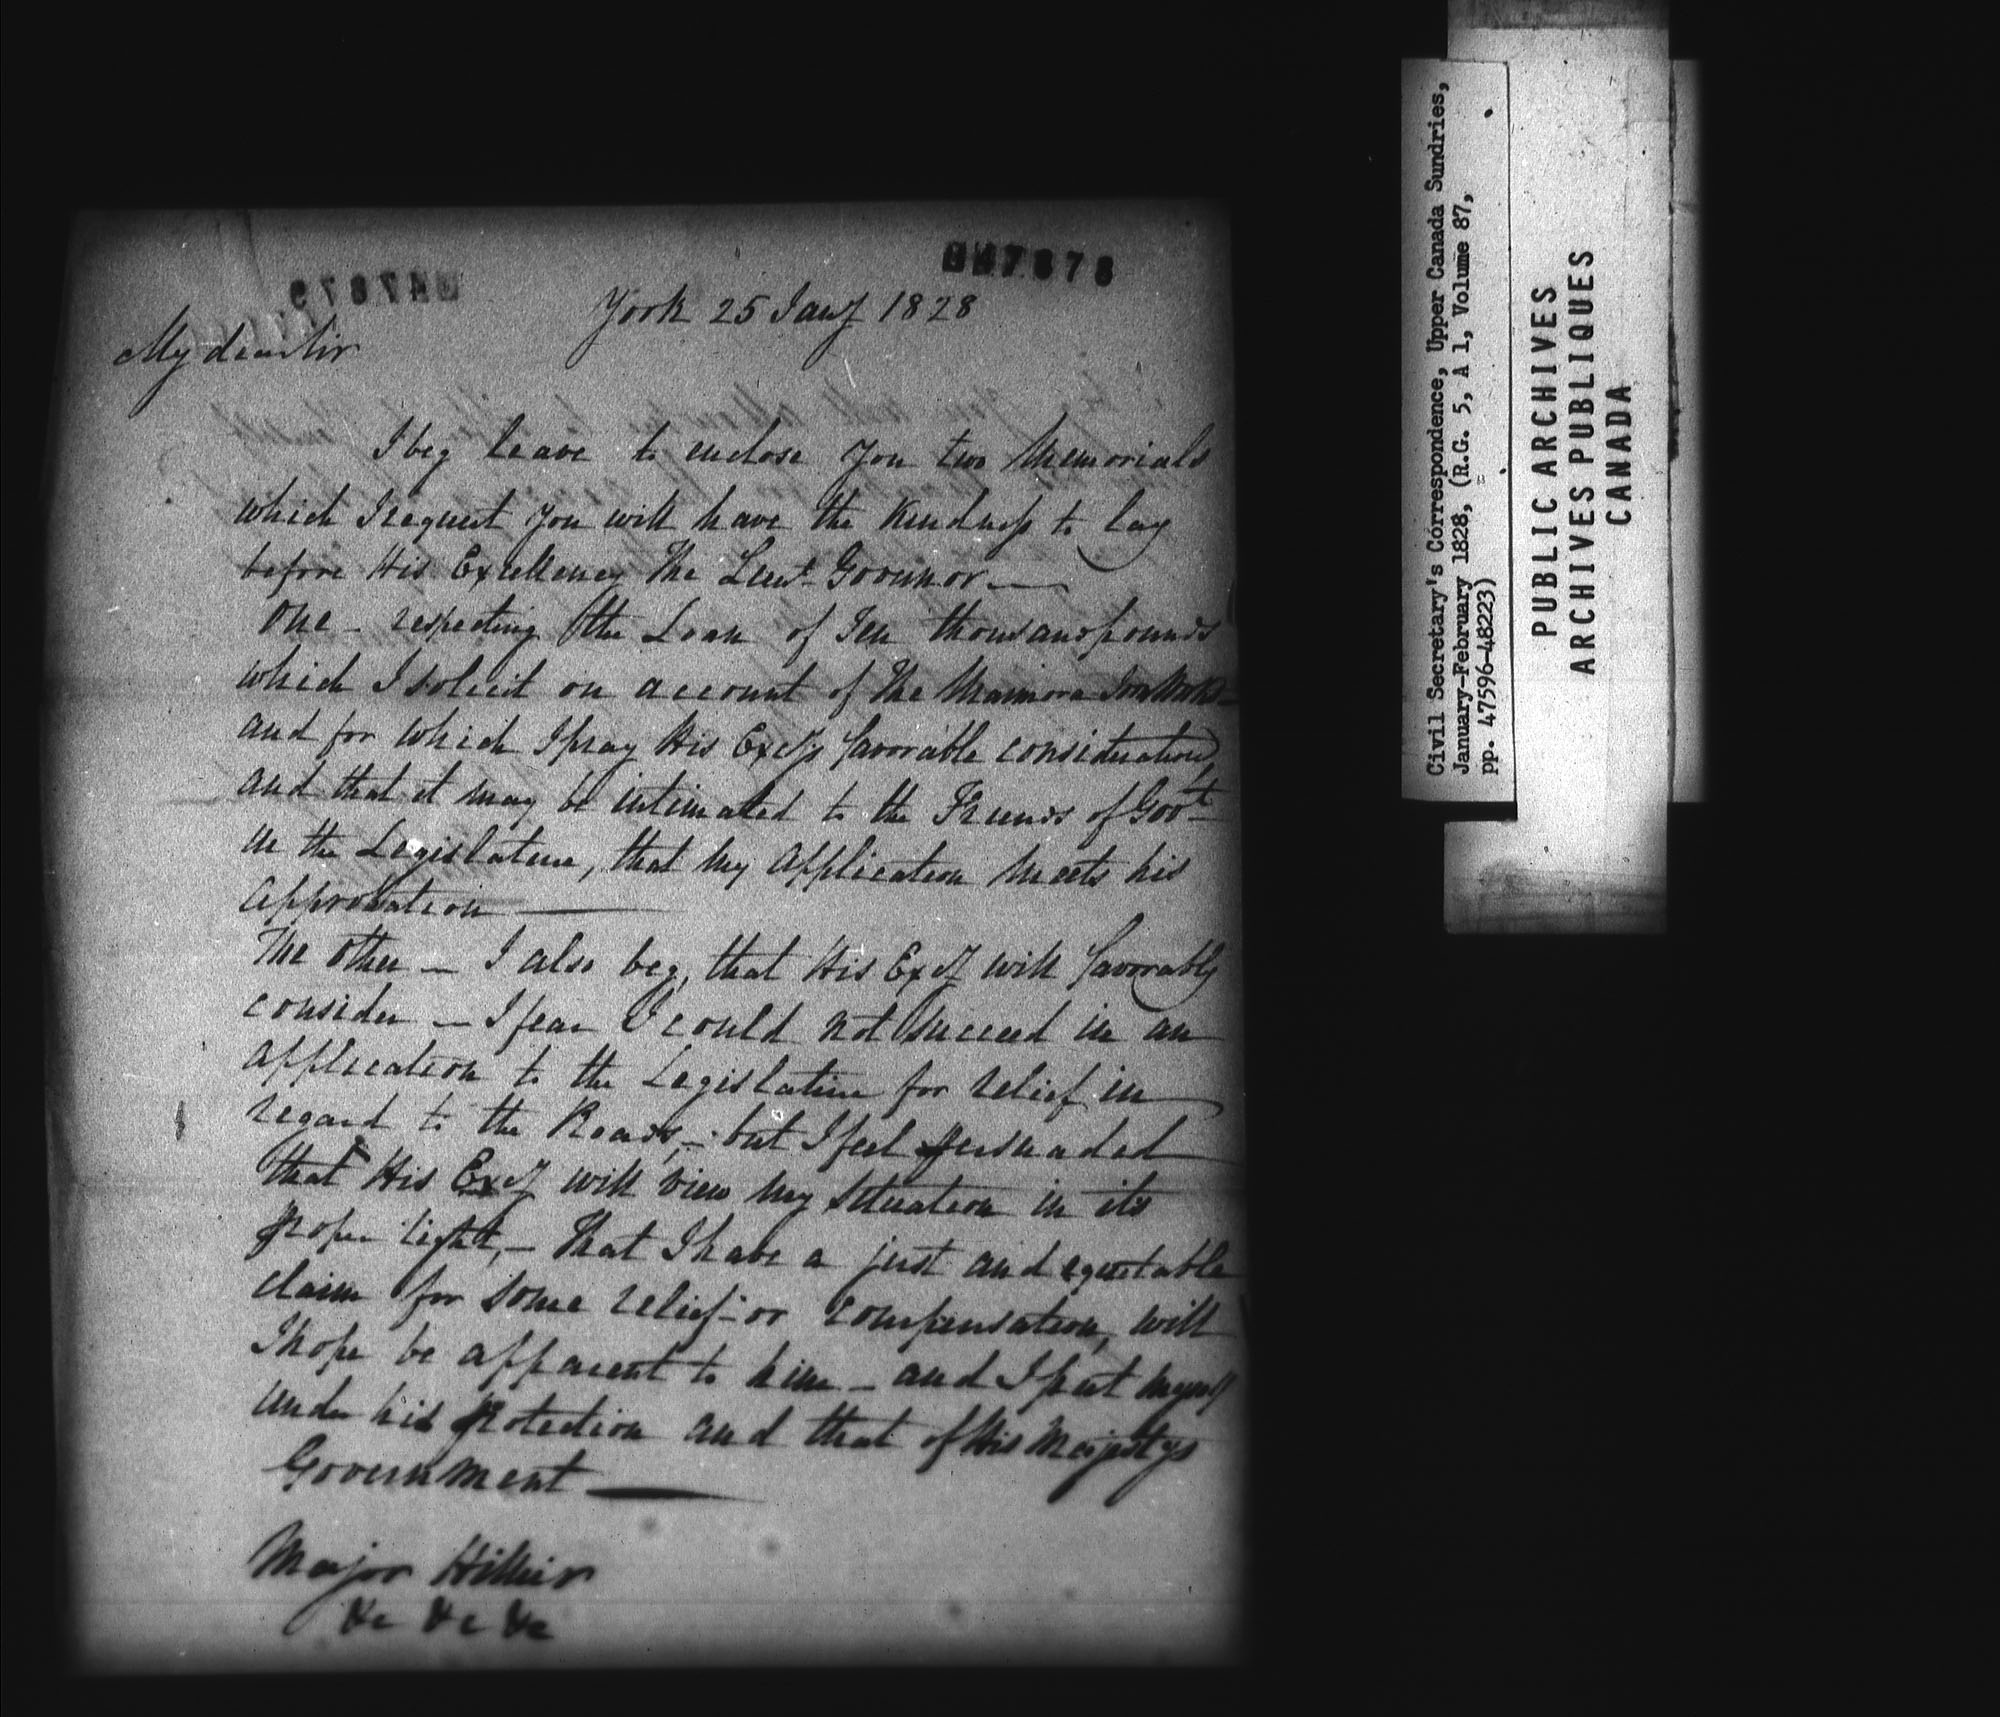 047878
York 25 Jany 1828
My dear Sir
I beg leave to enclose you two Memorials
which I request you will have the Kindness to lay
before His Excellency The Lieut. Governor —
One — respecting the Loan of Ten thousand pounds
which I solicit on account of The Marmora Iron Works —
and for which I pray His Excy's favorable consideration,
and that it may be intimated to the Friends of Govt.
in the Legislature, that my application meets his
approbation —
The other — I also beg, that His Excy will favorably
consider — I fear I could not succeed in an
application to the Legislature for relief in
regard to the Roads, — but I feel persuaded
that His Excy will view my situation in its
proper light, — That I have a just and equitable
claim for some relief or compensation, will
I hope be apparent to him — and I put myself
under his protection and that of His Majestys
Government —
Major Hillier
&c &c &c
Civil Secretary's Correspondence, Upper Canada Sundries,
January-February 1828, (R.G. 5, A 1, Volume 87,
pp. 47596-48223)
PUBLIC ARCHIVES
ARCHIVES PUBLIQUES
CANADA